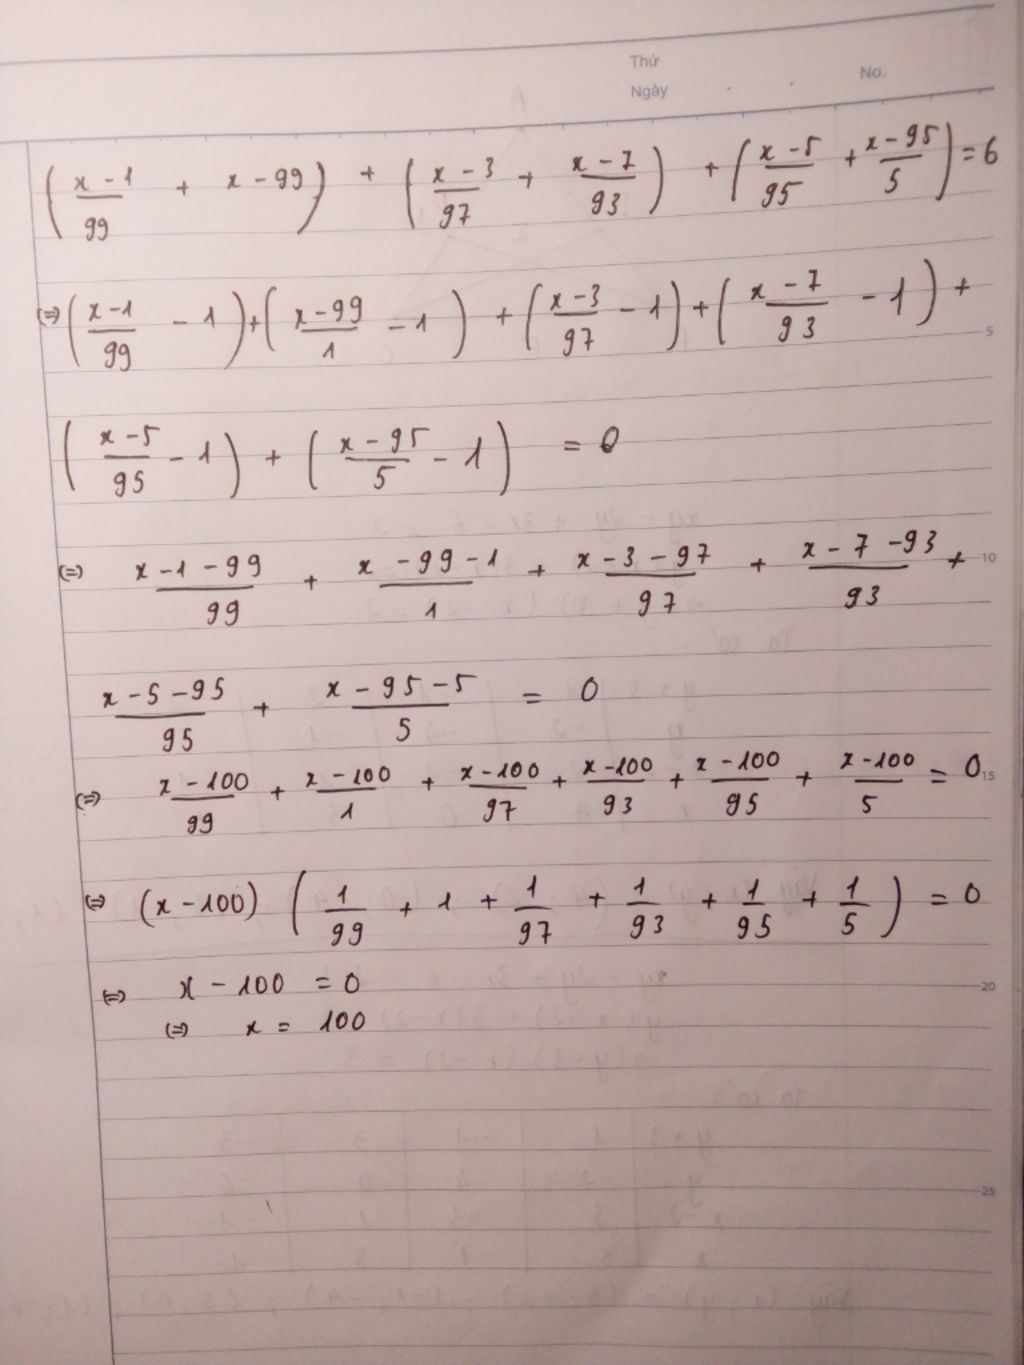 Thứ
Ngày
No.
(x - 1 / 99 + x - 99) + (x - 3 / 97 + x - 7 / 93) + (x - 5 / 95 + x - 95 / 5) = 6
(=) (x - 1 / 99 - 1) + (x - 99 / 1 - 1) + (x - 3 / 97 - 1) + (x - 7 / 93 - 1) +
5
(x - 5 / 95 - 1) + (x - 95 / 5 - 1) = 0
(=) x - 1 - 99 / 99 + x - 99 - 1 / 1 + x - 3 - 97 / 97 + x - 7 - 93 / 93 +
10
x - 5 - 95 / 95 + x - 95 - 5 / 5 = 0
(=) x - 100 / 99 + x - 100 / 1 + x - 100 / 97 + x - 100 / 93 + x - 100 / 95 + x - 100 / 5 = 0
15
(=) (x - 100) (1 / 99 + 1 + 1 / 97 + 1 / 93 + 1 / 95 + 1 / 5) = 0
(=) x - 100 = 0
20
(=) x = 100
25